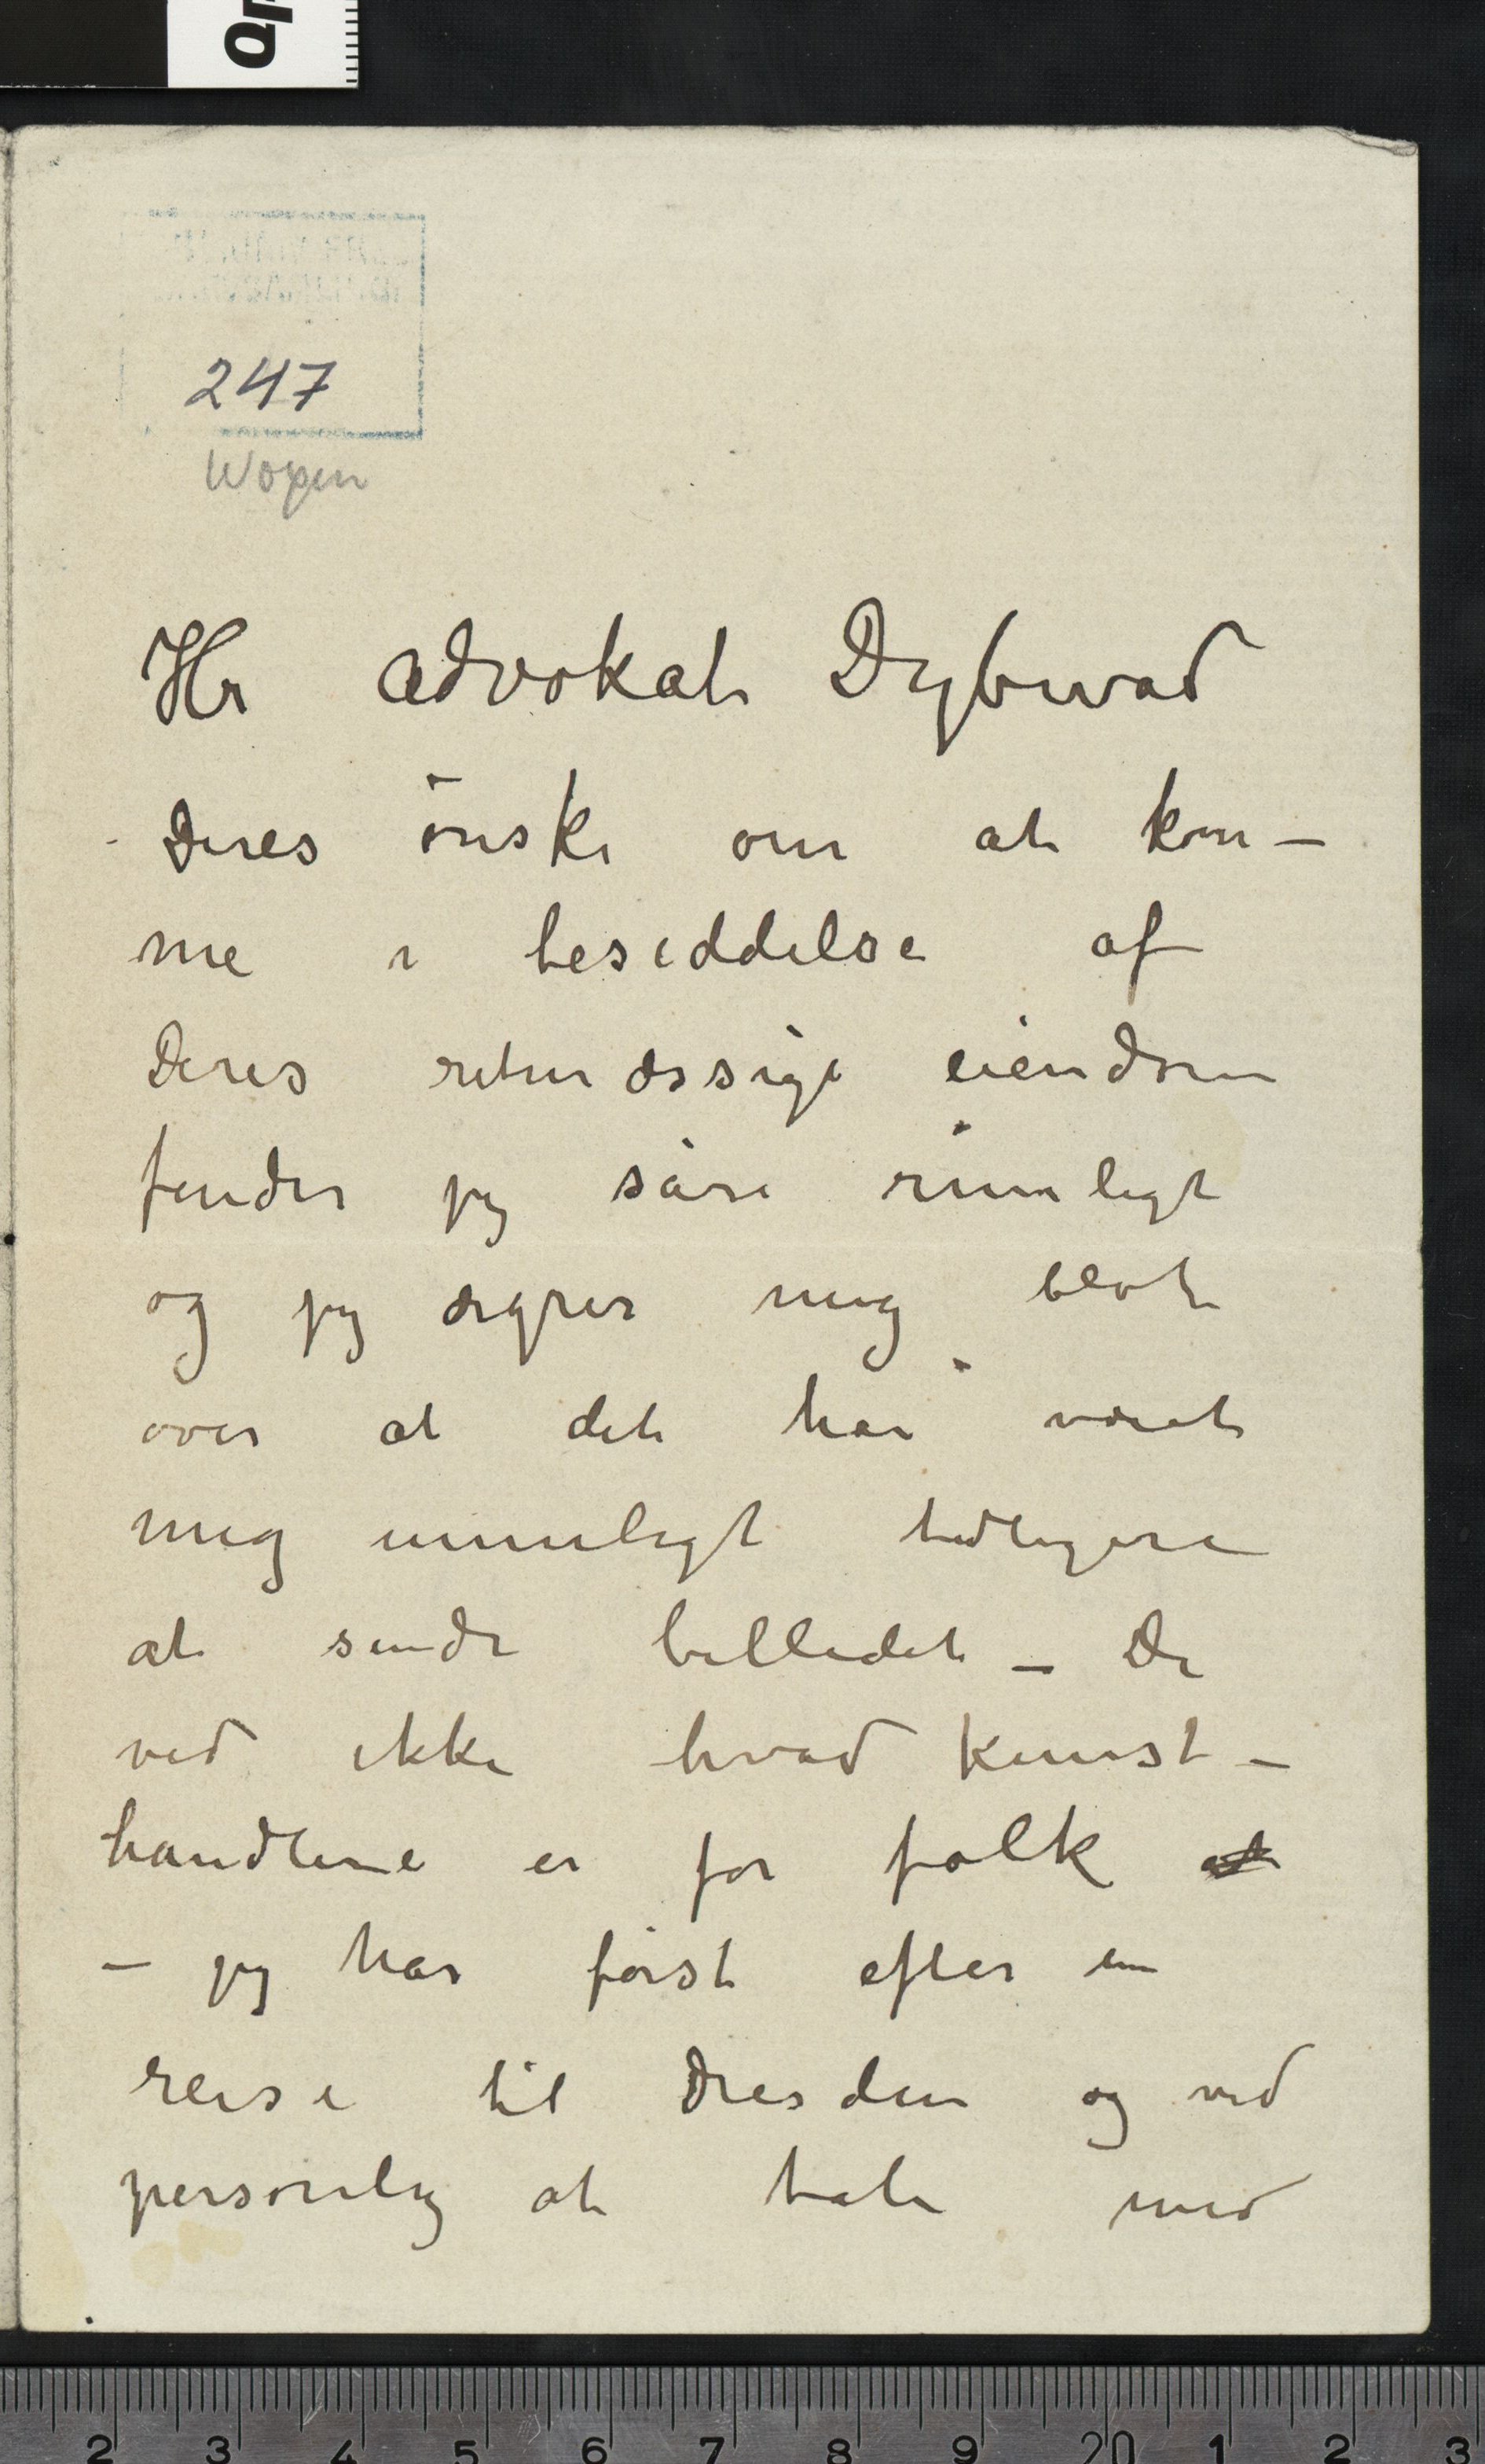 Qp
247
Wopen
Hr Advokat Dybwad
Deres ønske om at kom–
me i besiddelse af
Deres retmæssige eiendom
finder jeg såre rimeligt
og jeg ærgrer mig blot
over at det har været
mig umuligt tidligere
at sende billedet – De
ved ikke hvad kunst–
handlerne er for folk
– jeg har først efter en
reise til Dresden og ved
personlig at tale med
2 3 4 5 6 7 8 9 20 1 2 3